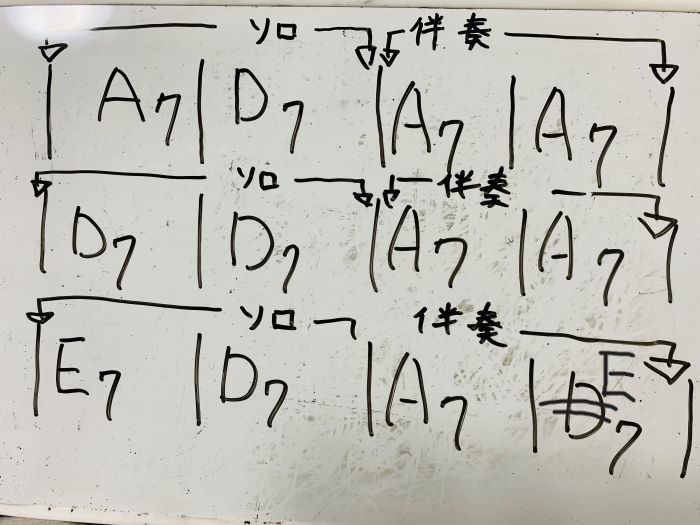 ソロ 伴奏
| A7 | D7 | A7 | A7 |
ソロ 伴奏
| D7 | D7 | A7 | A7 |
ソロ 伴奏
| E7 | D7 | A7 | D E7 |